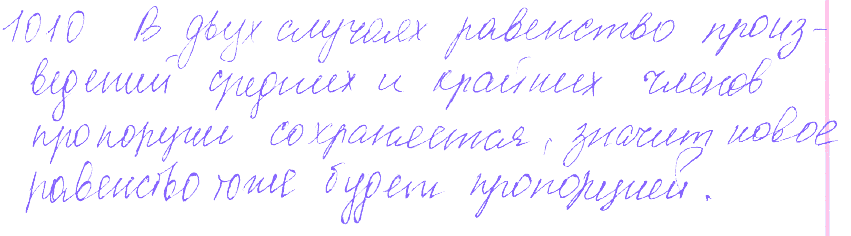 1010 В двух случаях равенство произ-
ведений средних и крайних членов
пропорции сохраняется, значит новое
равенство тоже будет пропорцией.